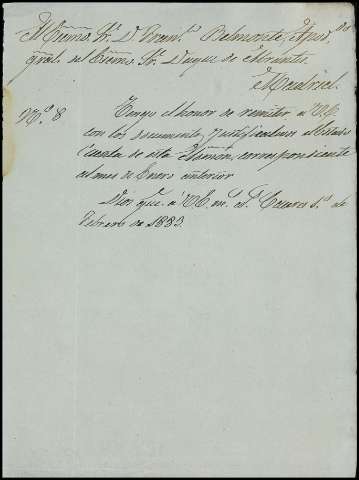 Al Excmo. Sr. D. Franco. Belmonte, Apdo.
gral. del Excmo. Sr. Duque de Abrantes
Madrid.
No. 8
Tengo el honor de remitir a V.E.
con los documentos justificativos el Estado
Cuenta de esta Admón. correspondiente
al mes de Enero anterior
Dios gue. a V.E. ms. as. Cáceres 1o. de
Febrero de 1883.